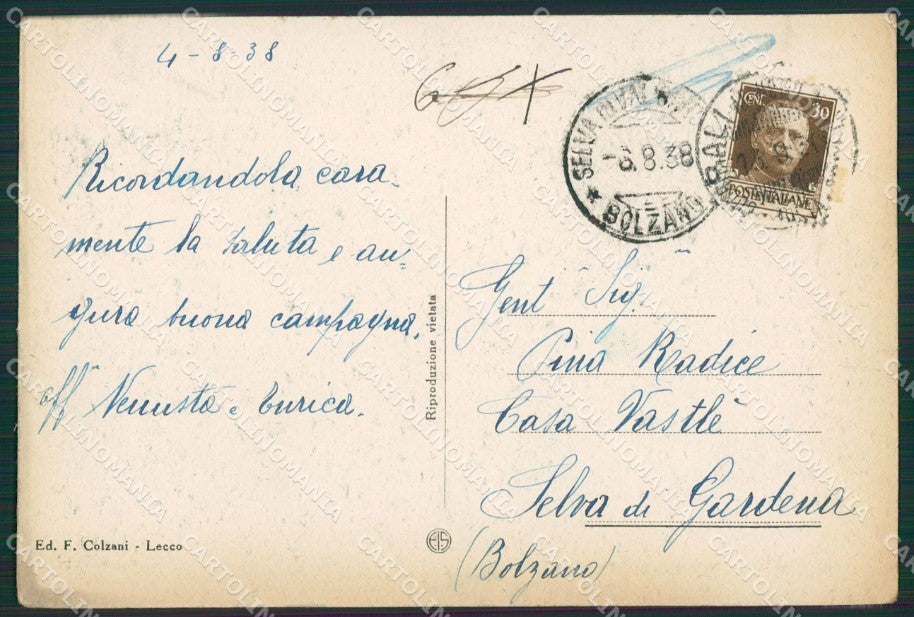 4-8-38
Ricordandola cara-
mente la saluta e au=
gura buona campagna.
aff Venusta e Enrica.
Ed. F. Colzani - Lecco
Riproduzione vietata
SELVA DI VAL
-6.8.38
BOLZANO
CENT. 30
POSTE ITALIANE
Gent Sig.
Pina Radice
Casa Vastlè
Selva di Gardena
(Bolzano)
CARTOLINOMANIA